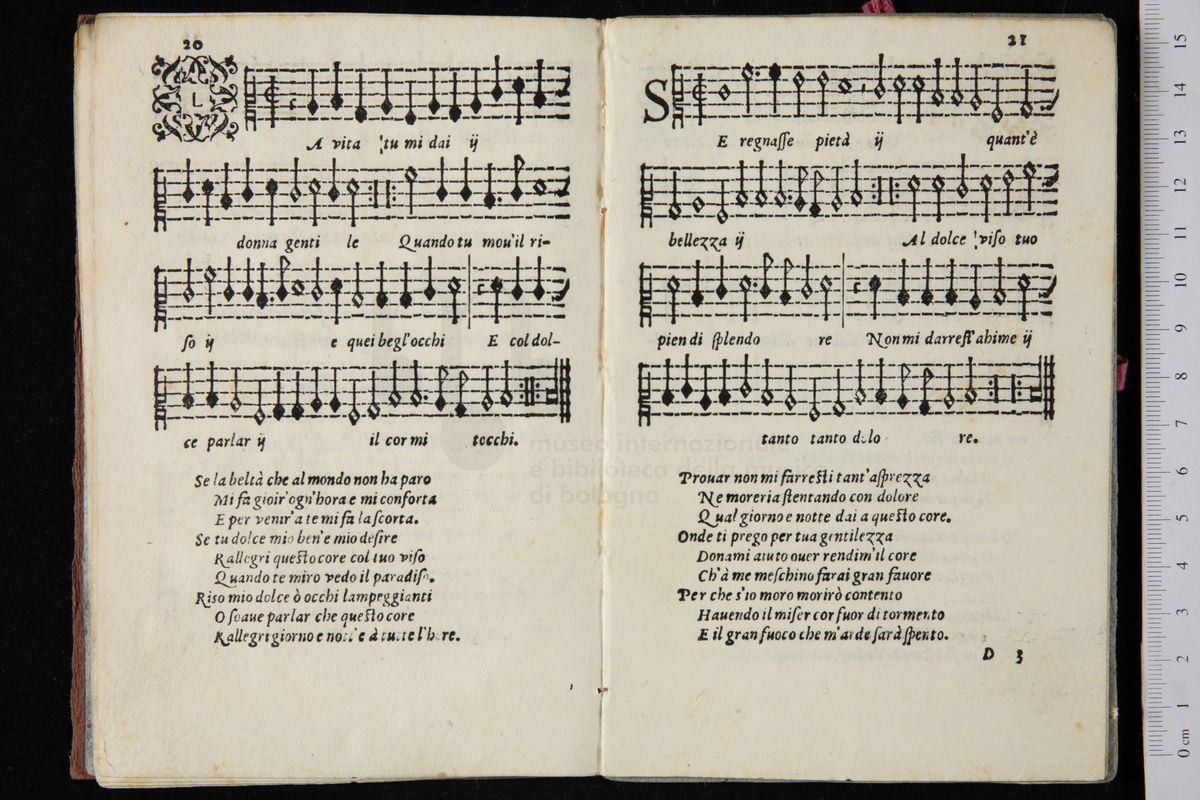 20
L
A vita tu mi dai ij
donna genti le Quando tu mou'il ri-
so ij e quei begl'occhi E col dol-
ce parlar ij il cor mi tocchi.
Se la beltà che al mondo non ha paro
Mi fa gioir'ogn'hora e mi conforta
E per venir'a te mi fa la scorta.
Se tu dolce mio ben'e mio desire
Rallegri questo core col tuo viso
Quando te miro vedo il paradiso.
Riso mio dolce ò occhi lampeggianti
O soaue parlar che questo core
Rallegri giorno e nott'e à tutte l'hore.
21
S
E regnasse pietà ij quant'è
bellezza ij Al dolce viso tuo
pien di splendo re Non mi darrest'ahime ij
tanto tanto dolo re.
Prouar non mi farresti tant'asprezza
Ne moreria stentando con dolore
Qual giorno e notte dai a questo core.
Onde ti prego per tua gentilezza
Donami aiuto ouer rendim'il core
Ch'à me meschino farai gran fauore
Per che s'io moro morirò contento
Hauendo il miser cor fuor di tormento
E il gran fuoco che m'arde sarà spento.
D 3
museo internazionale
e biblioteca della musica
di bologna
15
14
13
12
11
10
9
8
7
6
5
4
3
2
1
0 cm